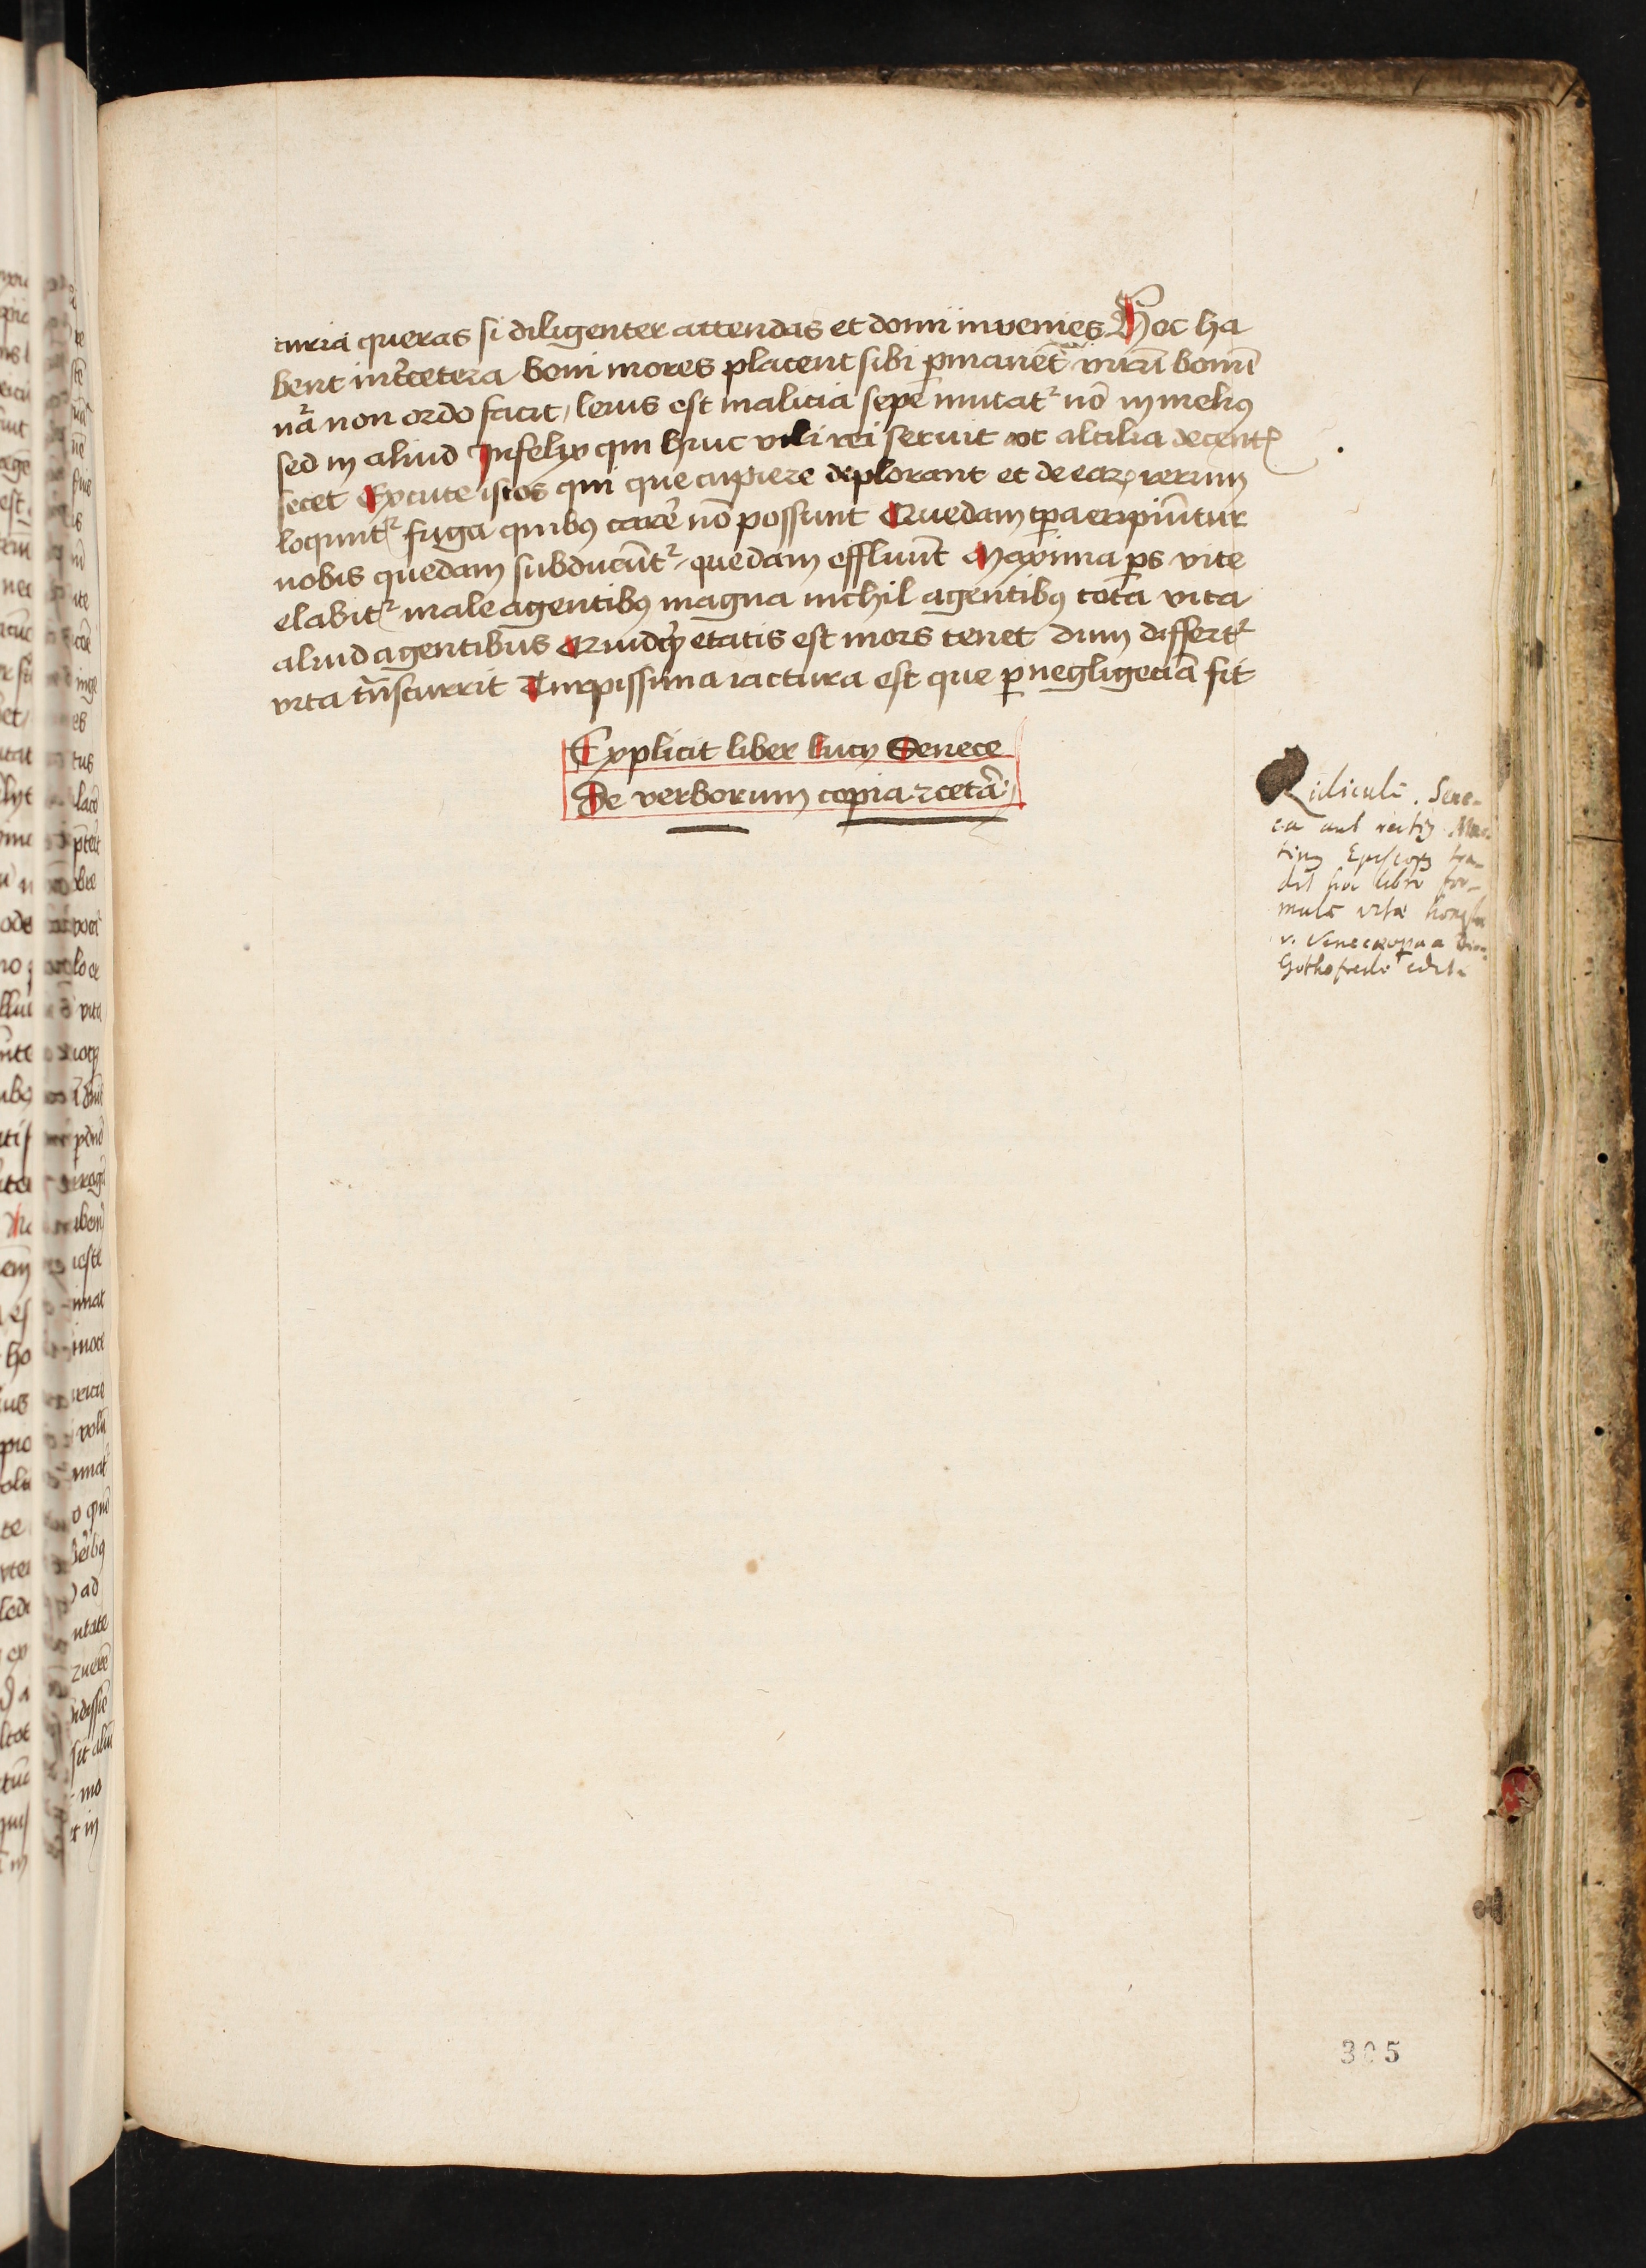 curia queras si diligenter attendas et domi invenies Hoc ha
bent int̄cetera boni mores placent sibi ꝑmanēt virū bonū
nā non ordo facit / levis est malicia sepe mutatr nō in melius
sed in aliud Infelix qui huic vili rei servit vt altilia decentr
secet Excute istos qui que cupiere deplorant et de earꝝ rerum
loquūtr fuga quibꝫ carē nō possunt Quedam tꝑa eripiūtur
nobis quedam subducūtr / quedam effluūt Maxima ꝑs vite
elabitr male agentibꝫ magna nichil agentibꝫ tota vita
aliud agentibus Quidqͥd etatis est mors tenet dum differtr
vita trāscurrit Turpissima iactura est que ꝑ negligeciā fit
Explicit liber lucij Senece
De verborum copia ⁊ cetā
Ridiculē. Sene-
ca aut
tinꝫ Episcopꝫ tra-
dit hoc libro for-
mulā vitæ honestæ
v.
Gothofredo edit.
305